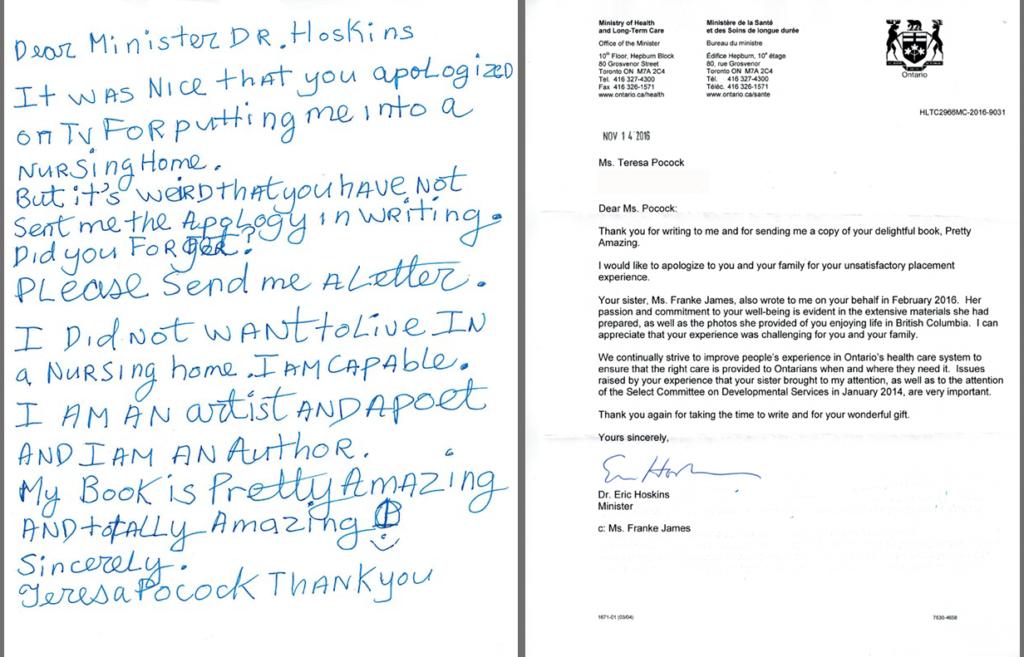 Dear Minister DR. Hoskins
It was Nice that you apologized
on TV FOR putting me into a
NURSing Home.
But it's weiRD that you have Not
Sent me the Apology in writing.
Did you FORget?
PLease Send me A Letter.
I Did not WANT to Live IN
a NURSing home. I AM CAPABLe.
I AM AN artist AND A poet
AND I AM AN AuthoR.
My Book is Pretty AMAZING
AND totALLy AmaZing
Sincerely.
Teresa Pocock THANK you
Ministry of Health
and Long-Term Care
Office of the Minister
10th Floor, Hepburn Block
80 Grosvenor Street
Toronto ON M7A 2C4
Tel. 416 327-4300
Fax 416 326-1571
www.ontario.ca/health
Ministère de la Santé
et des Soins de longue durée
Bureau du ministre
Édifice Hepburn, 10e étage
80, rue Grosvenor
Toronto ON M7A 2C4
Tél. 416 327-4300
Téléc. 416 326-1571
www.ontario.ca/sante
Ontario
HLTC2966MC-2016-9031
NOV 14 2016
Ms. Teresa Pocock
Dear Ms. Pocock:
Thank you for writing to me and for sending me a copy of your delightful book, Pretty
Amazing.
I would like to apologize to you and your family for your unsatisfactory placement
experience.
Your sister, Ms. Franke James, also wrote to me on your behalf in February 2016. Her
passion and commitment to your well-being is evident in the extensive materials she had
prepared, as well as the photos she provided of you enjoying life in British Columbia. I can
appreciate that your experience was challenging for you and your family.
We continually strive to improve people's experience in Ontario's health care system to
ensure that the right care is provided to Ontarians when and where they need it. Issues
raised by your experience that your sister brought to my attention, as well as to the attention
of the Select Committee on Developmental Services in January 2014, are very important.
Thank you again for taking the time to write and for your wonderful gift.
Yours sincerely,
Dr. Eric Hoskins
Minister
c: Ms. Franke James
1671-01 (03/04)
7530-4658